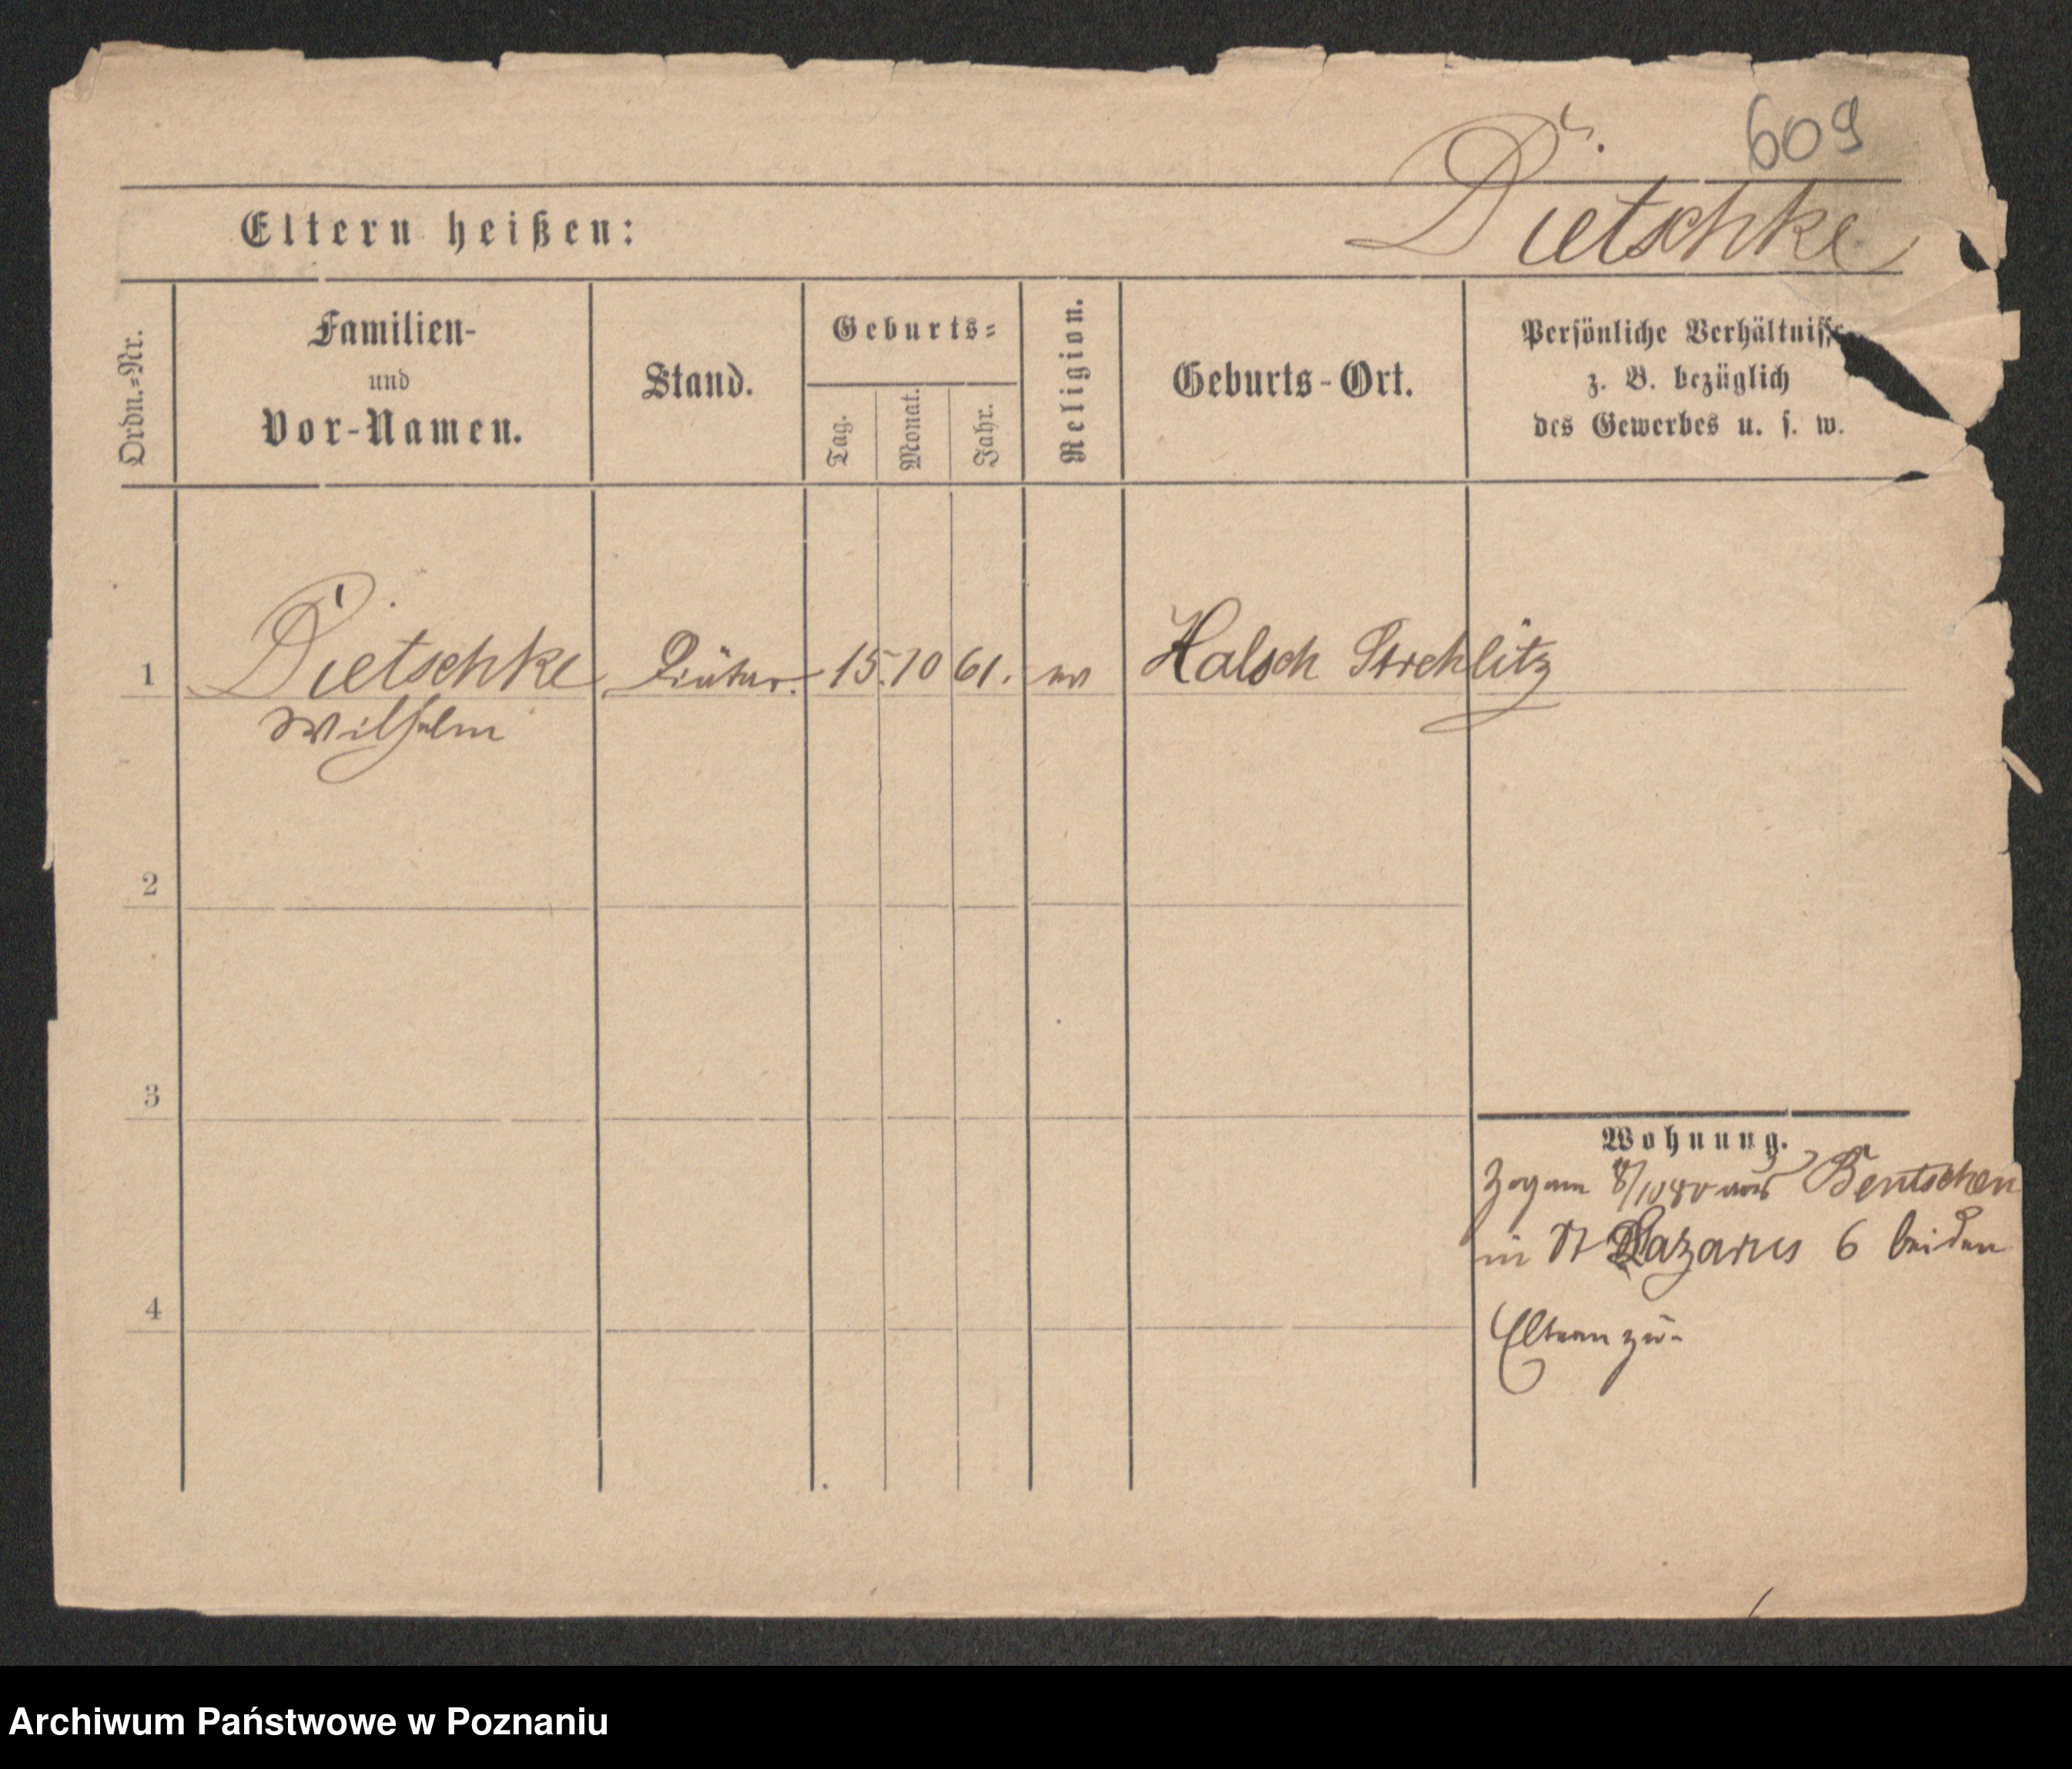 609
Dietschke
Eltern heißen:
Ordn.=Nr.
Familien-
und
Vor-Namen.
Stand.
Geburts=
Tag.
Monat.
Jahr.
Religion.
Geburts-Ort.
Persönliche Verhältnisse
z. B. bezüglich
des Gewerbes u. s. w.
1 Dietschke 15. 10 61. Halsch Strehlitz
Wilhelm
2
3
4
Wohnung.
Zog am 8/10 80 aus Bentschen
in St Lazarus 6 bei den
Eltern zu-
Archiwum Państwowe w Poznaniu